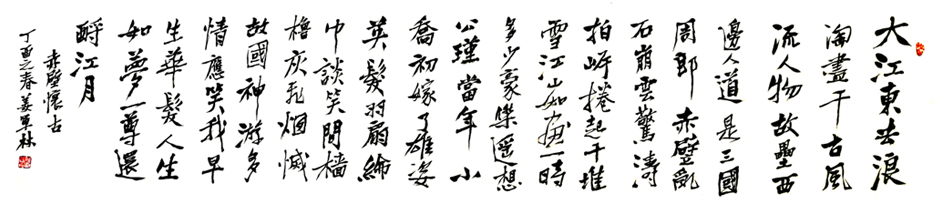 大江東去浪
淘盡千古風
流人物故壘西
邊人道是三國
周郎赤壁亂
石崩雲驚濤
拍岸捲起千堆
雪江山如畫一時
多少豪傑遥想
公瑾當年小
喬初嫁了雄姿
英髮羽扇綸
巾談笑間檣
櫓灰飛烟滅
故國神游多
情應笑我早
生華髮人生
如夢一尊還
酹江月
赤壁懷古
丁酉之春姜軍林